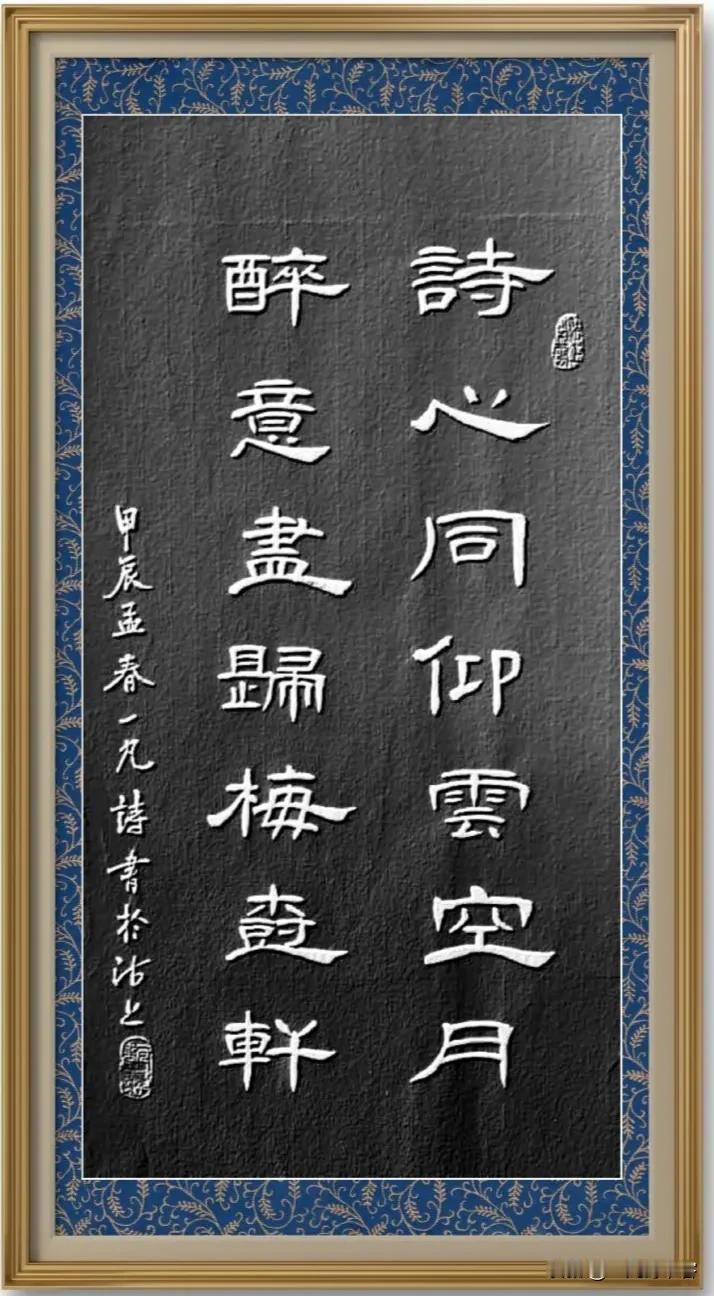 詩心同仰雲空月
醉意盡歸梅軒
甲辰孟春一凡詩書於沽上